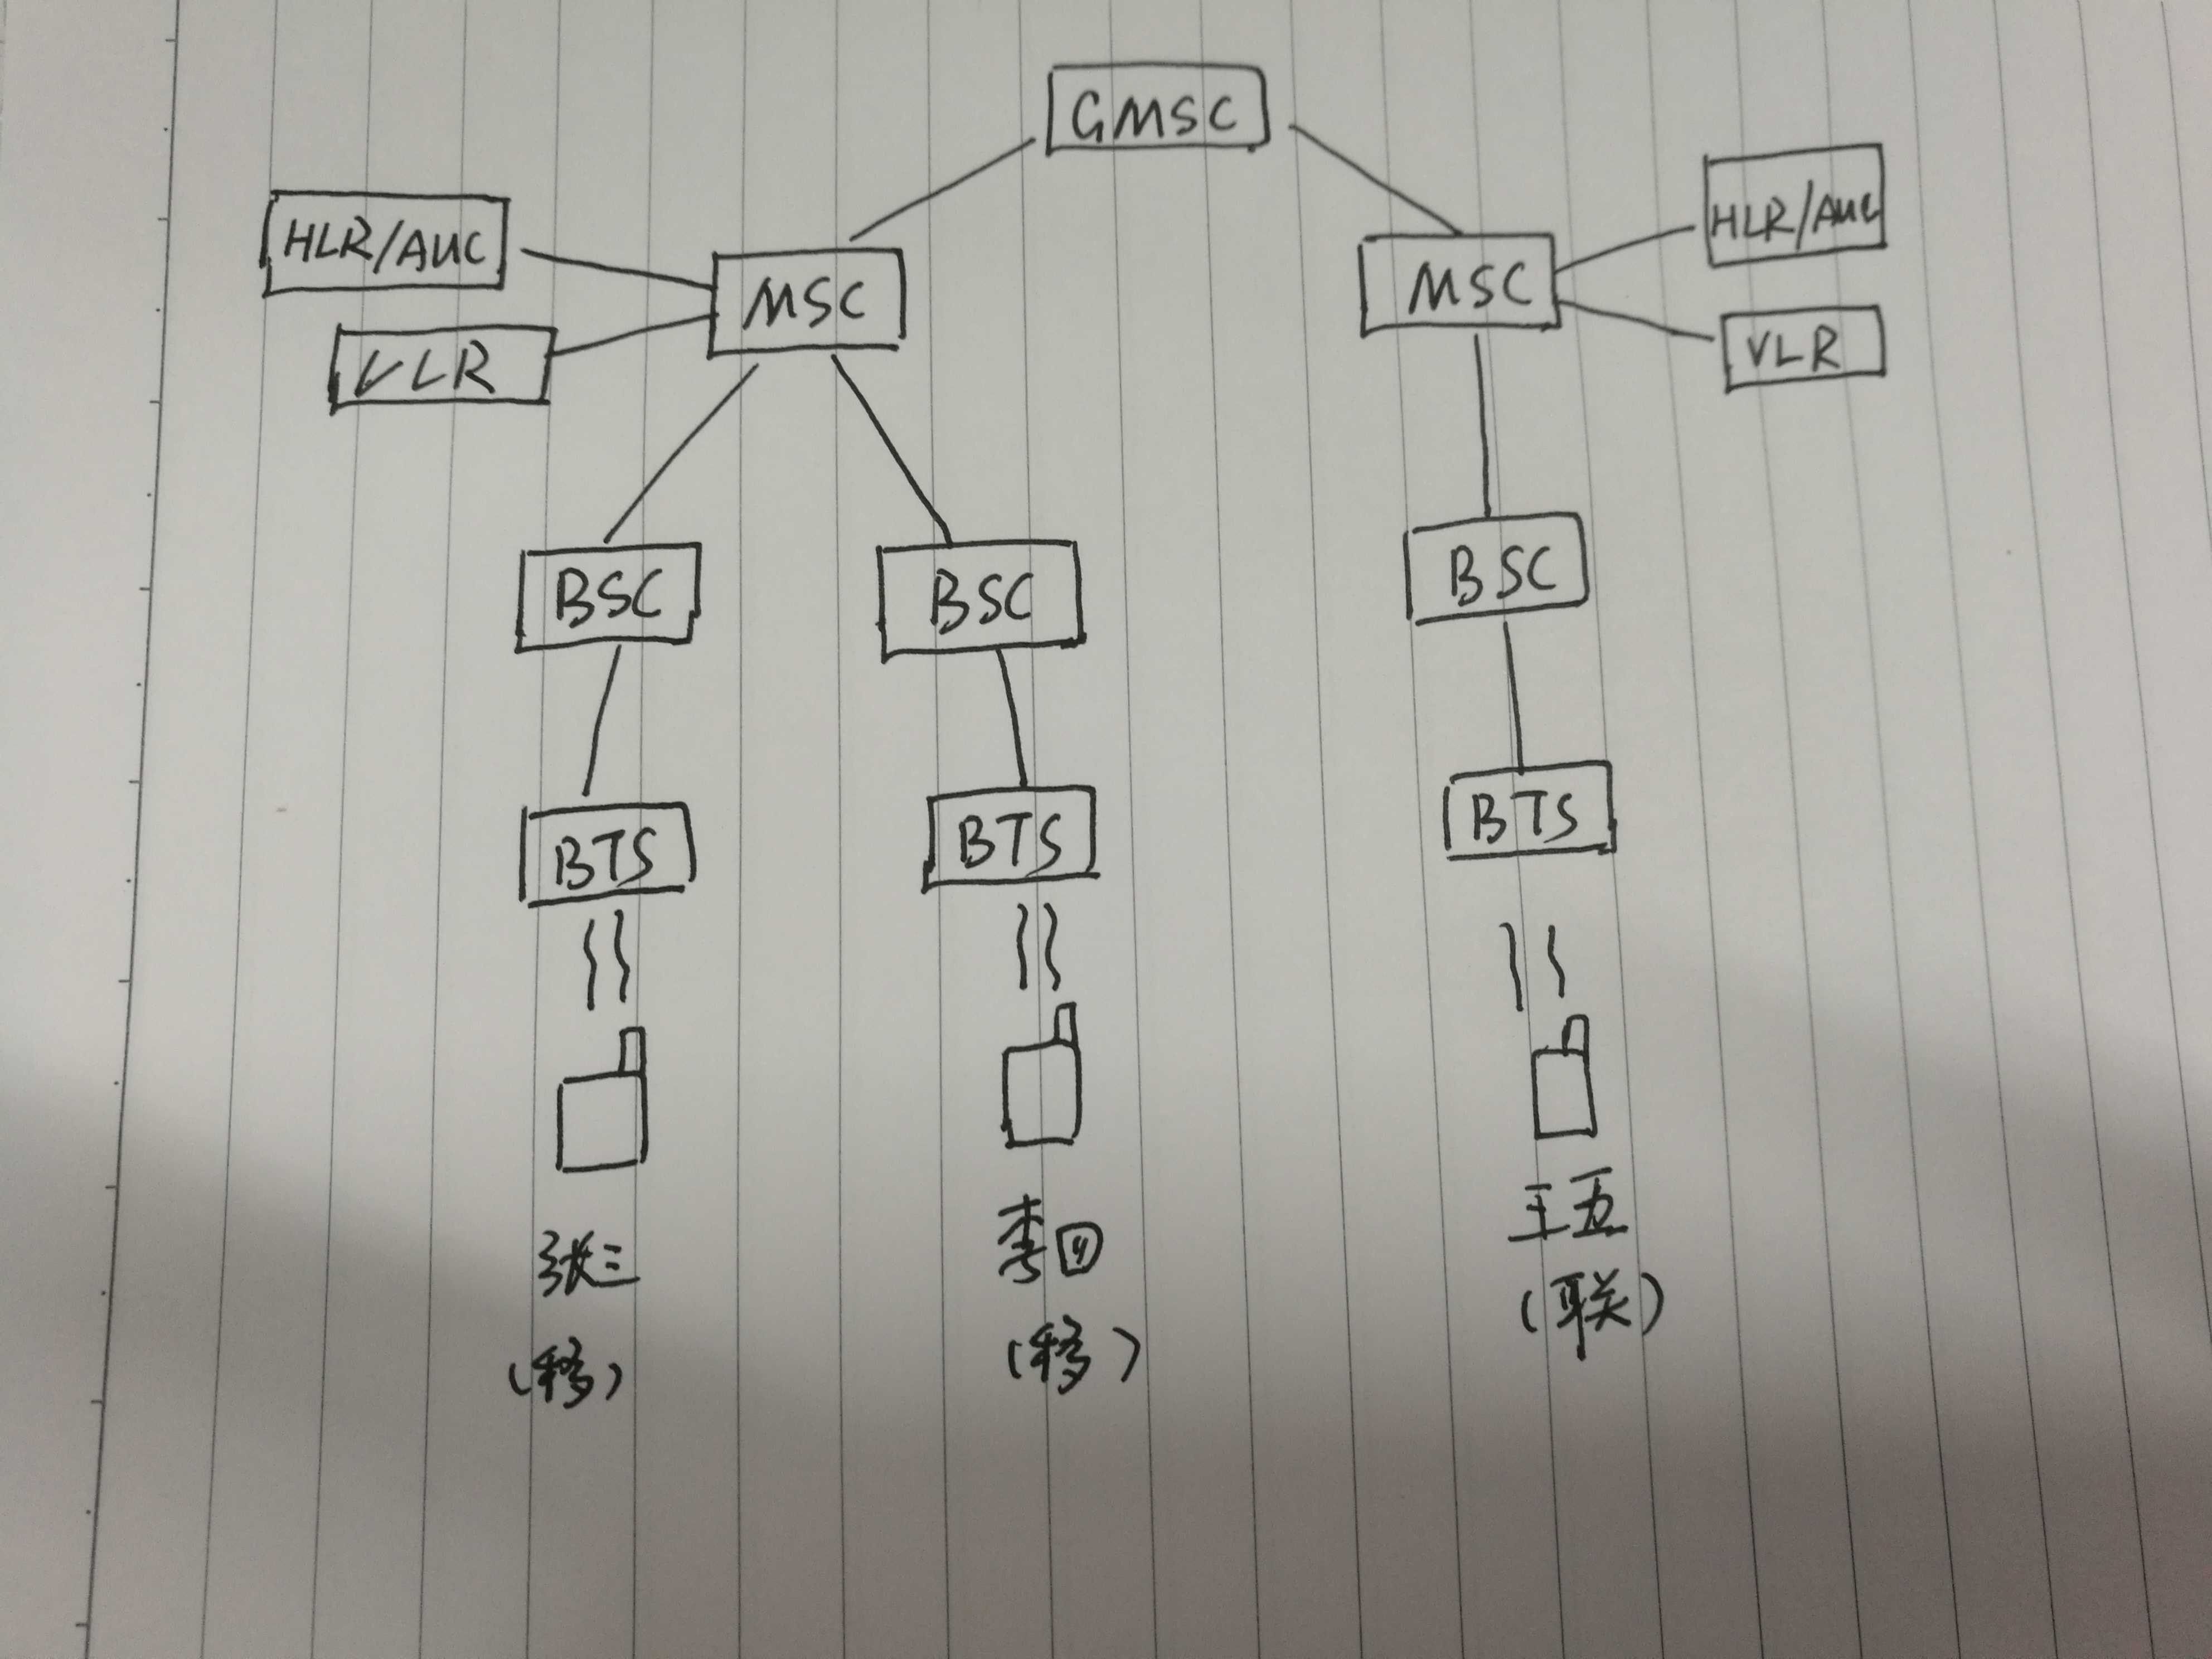 GMSC
HLR/AUC
MSC
VLR
MSC
HLR/AUC
VLR
BSC
BSC
BSC
BTS
BTS
BTS
张三
(移)
李四
(移)
王五
(联)